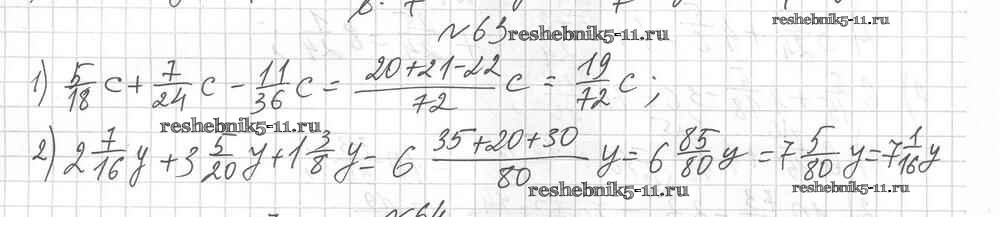 reshebnik5-11.ru
№63
reshebnik5-11.ru
1) 5/18 c + 7/24 c - 11/36 c = (20+21-22)/72 c = 19/72 c ;
reshebnik5-11.ru
2) 2 7/16 y + 3 5/20 y + 1 3/8 y = 6 (35+20+30)/80 y = 6 85/80 y = 7 5/80 y = 7 1/16 y
reshebnik5-11.ru
reshebnik5-11.ru
№64